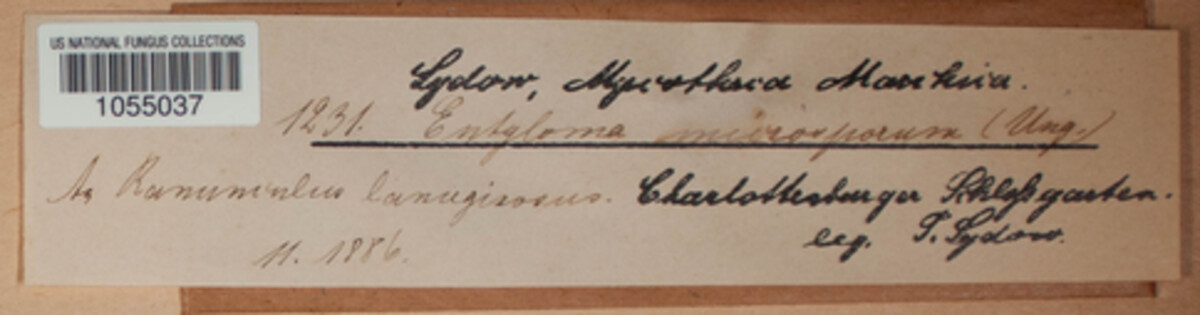 US NATIONAL FUNGUS COLLECTIONS
1055037
Sydow, Mycotheca Marchica.
1231. Entyloma microsporum (Ung.)
Ranunculus lanuginosus. Charlottenburger Schloßgarten.
11. 1886. leg. P. Sydow.